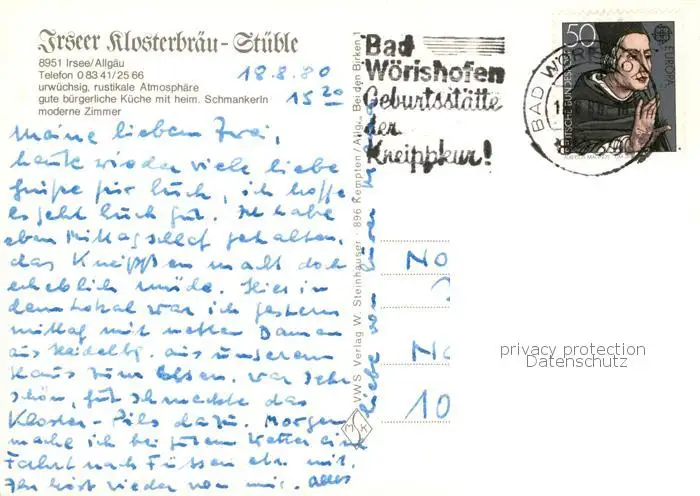 Irseer Klosterbräu-Stüble
8951 Irsee/Allgäu
Telefon 0 83 41/25 66
urwüchsig, rustikale Atmosphäre
gute bürgerliche Küche mit heim. Schmankerln
moderne Zimmer
18.8.80
15 20
Meine lieben Zwei,
heute wieder viele liebe
Grüße für Euch, ich hoffe
es geht Euch gut. Ich habe
eben Mittagschlaf gehalten,
das Kneippen macht doch
erheblich müde. Hier in
dem Lokal war ich gestern
mittag mit netten Damen
aus Heidelbg. aus unserem
Haus zum Essen. war sehr
schön, gut schmeckte das
Kloster-Pils dazu. Morgen
mache ich bei gutem Wetter eine
Fahrt nach Füssen etc. mit.
Ihr hört wieder von mir. alles
liebe von Eurer
VWS Verlag W. Steinhauser · 896 Kempten/Allg. Bei den Birken 1
Bad
Wörishofen
Geburtsstätte
der
Kneippkur!
BAD WÖRIS
50
DEUTSCHE BUNDESPOST
EUROPA
No
No
10
privacy protection
Datenschutz